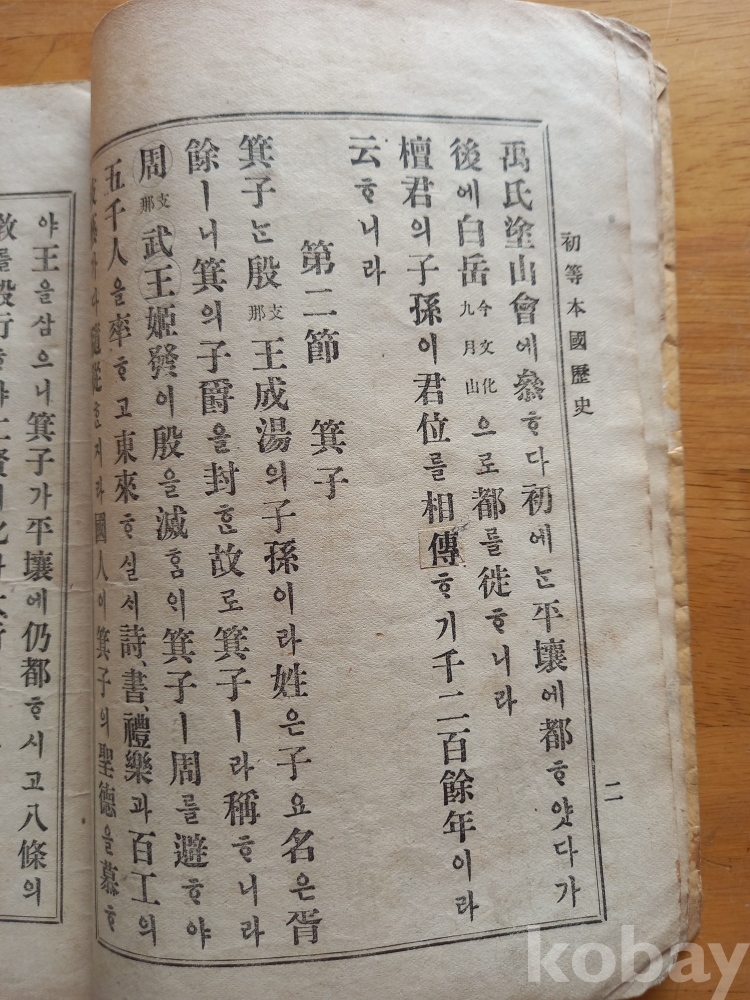 初等本國歷史
二
禹氏塗山會에叅ᄒᆞ다初에ᄂᆞᆫ平壤에都ᄒᆞ얏다가
後에白岳今文化九月山으로都를徙ᄒᆞ니라
檀君의子孫이君位를相傳ᄒᆞ기千二百餘年이라
云ᄒᆞ니라
第二節 箕子
箕子ᄂᆞᆫ殷支那王成湯의子孫이라姓은子요名은胥
餘ㅣ니箕의子爵을封ᄒᆞᆫ故로箕子ㅣ라稱ᄒᆞ니라
周支那武王姬發이殷을滅ᄒᆞᆷᄋᆡ箕子ㅣ周를避ᄒᆞ야
五千人을率ᄒᆞ고東來ᄒᆞ실ᄉᆡ詩、書、禮樂과百工의
國人이箕子의聖德을慕ᄒᆞ
야王을삼으니箕子가平壤에仍都ᄒᆞ시고八條의
敎를設行ᄒᆞ야
kobay